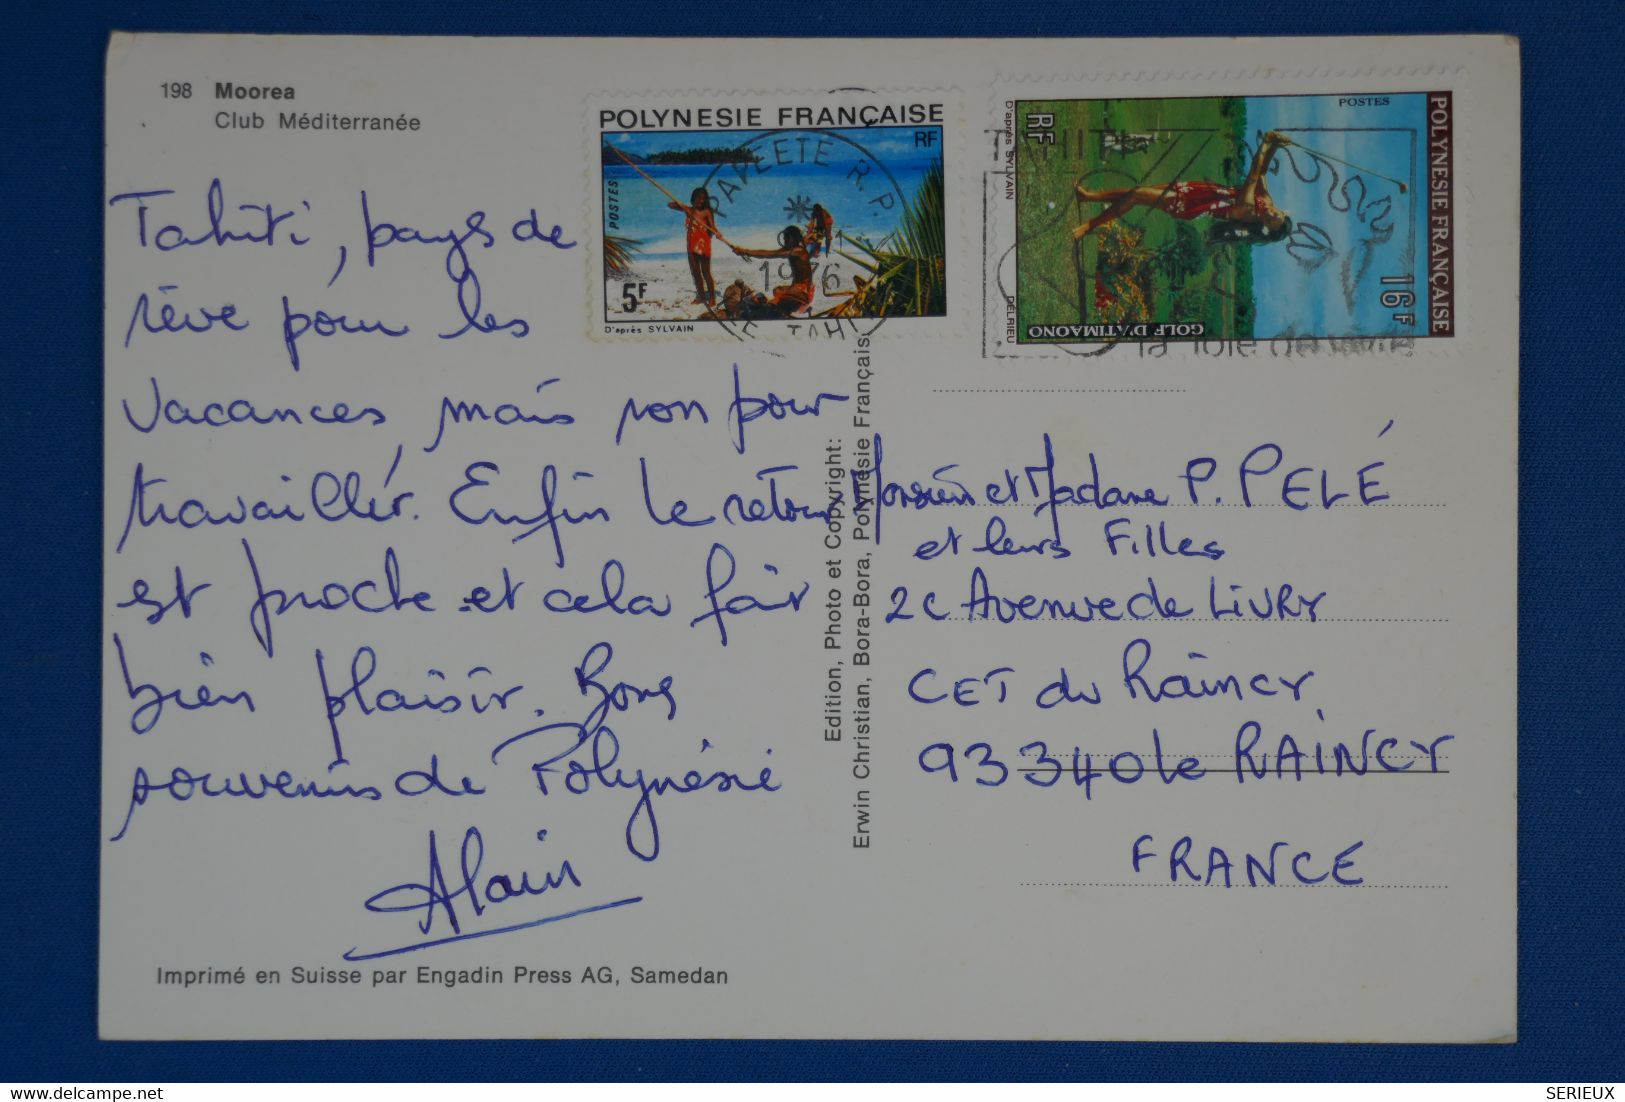 198 Moorea
Club Méditerranée
Tahiti, pays de
rêve pour les
vacances, mais non pour
travailler. Enfin le retour
est proche et cela fait
bien plaisir. Bons
souvenirs de Polynésie
Alain
Imprimé en Suisse par Engadin Press AG, Samedan
Edition, Photo et Copyright:
Erwin Christian, Bora-Bora, Polynésie Française
POLYNESIE FRANÇAISE
RF
POSTES
5F
D'après SYLVAIN
PAPEETE R.P.
1976
TAHITI
POLYNESIE FRANÇAISE
POSTES
16F
RF
GOLF D'ATIMAONO
D'après SYLVAIN
DELRIEU
TAHITI
la joie de vivre
Monsieur et Madame P. PELÉ
et leurs Filles
2C Avenue de LIVRY
CET du Raincy
93340 le RAINCY
FRANCE
SERIEUX